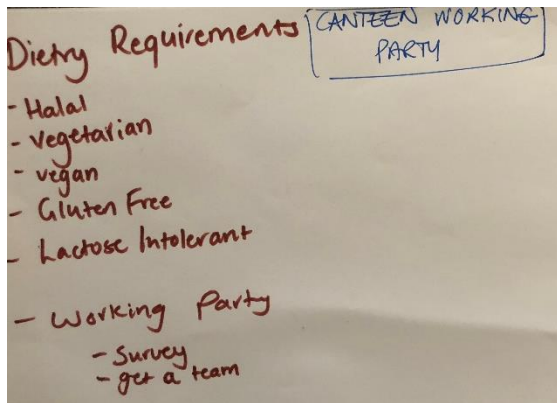 Dietry Requirements
CANTEEN WORKING
PARTY
- Halal
- vegetarian
- vegan
- Gluten Free
- Lactose Intolerant
- Working Party
- Survey
- get a team